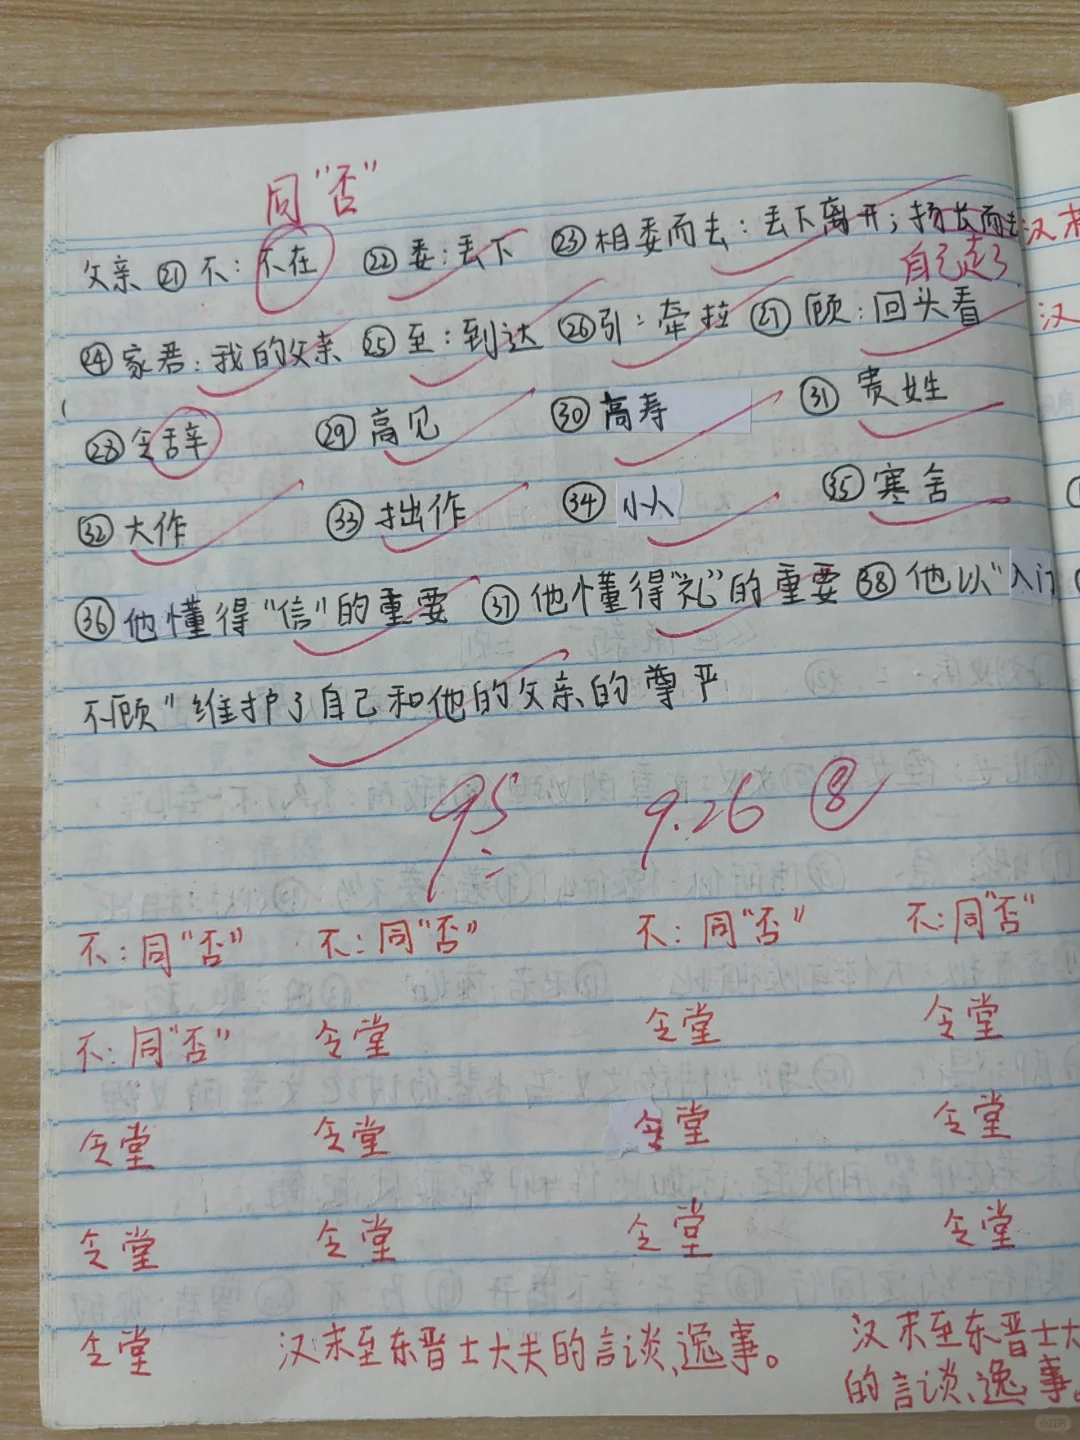 同“否”
父亲 ㉑ 不：不在 ㉒ 委：丢下 ㉓ 相委而去：丢下离开；扬长而去 汉末
自己走了
㉔ 家君：我的父亲 ㉕ 至：到达 ㉖ 引：牵拉 ㉗ 顾：回头看 汉
㉘ 令 ㉙ 高见 ㉚ 高寿 ㉛ 贵姓
㉜ 大作 ㉝ 拙作 ㉞ 小人 ㉟ 寒舍
㊱ 他懂得“信”的重要 ㊲ 他懂得“礼”的重要 ㊳ 他以“入门
不顾”维护了自己和他的父亲的尊严
95 9.26 ⑧
不：同“否” 不：同“否” 不：同“否” 不：同“否”
不：同“否” 令堂 令堂 令堂
令堂 令堂 令堂 令堂
令堂 令堂 令堂 令堂
令堂 汉末至东晋士大夫的言谈、逸事。 汉末至东晋士大
的言谈、逸事。